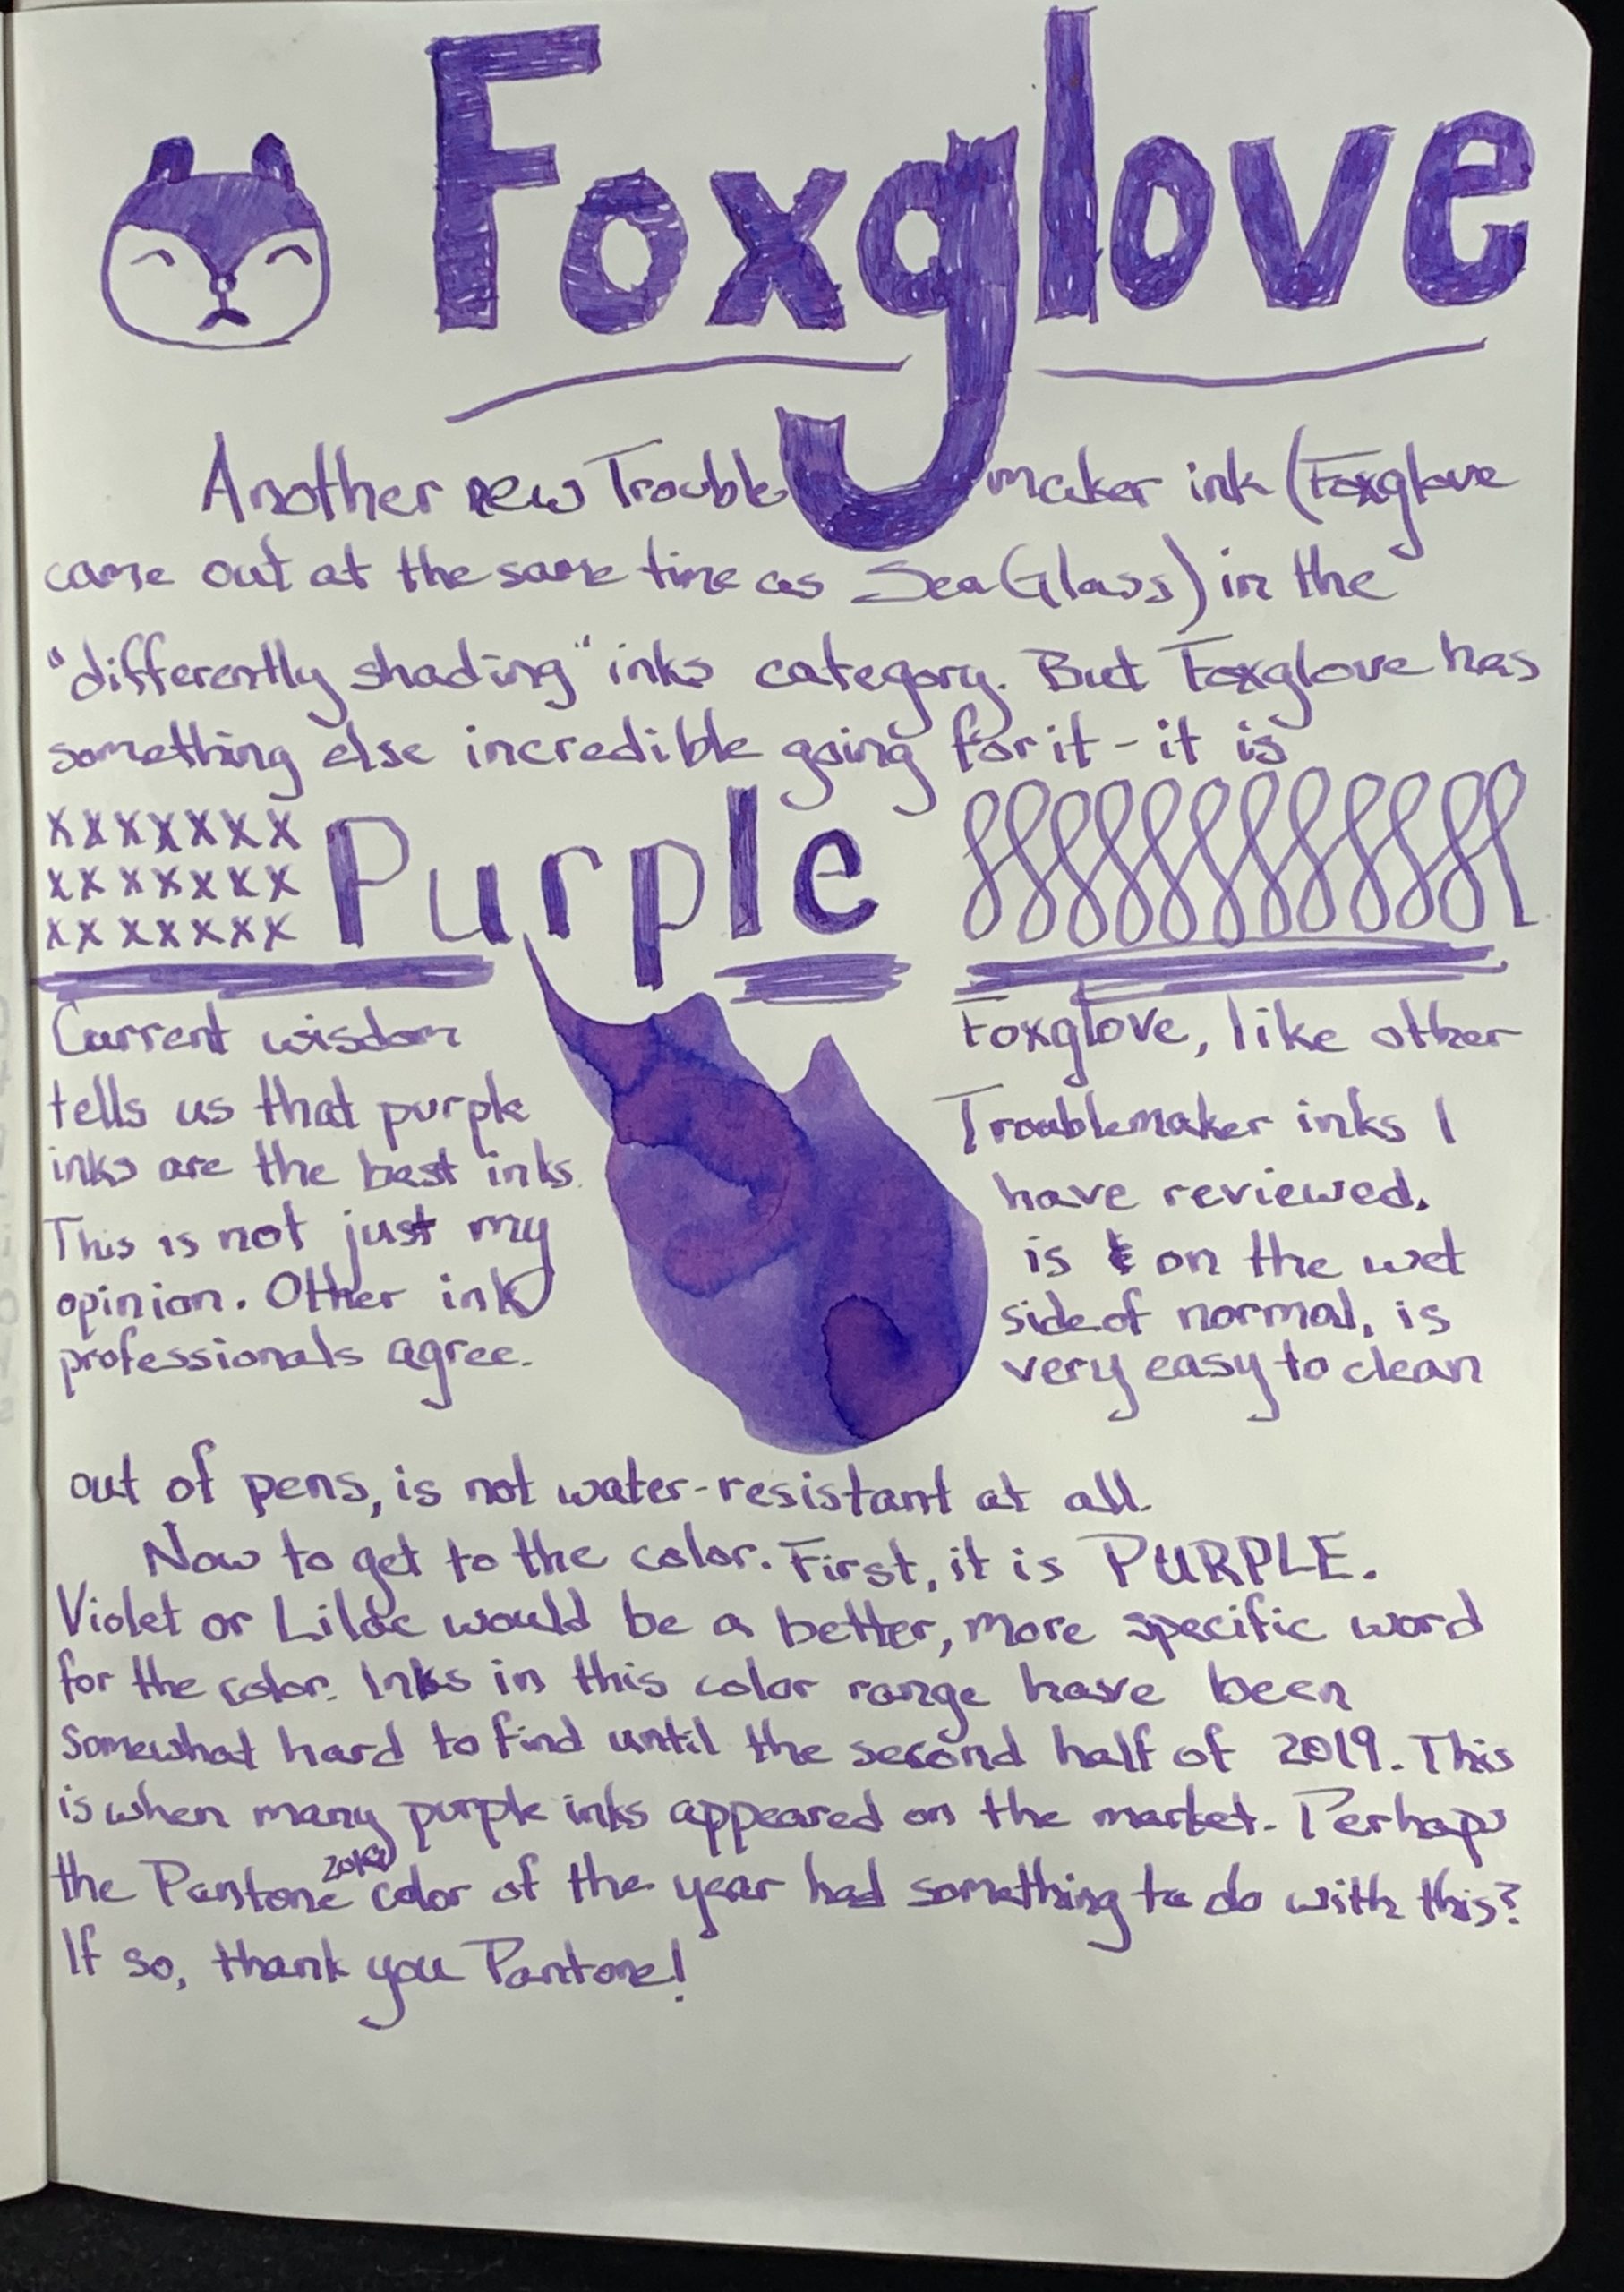 Foxglove
Another new Troublemaker ink (Foxglove
came out at the same time as Sea Glass) in the
"differently shading" inks category. But Foxglove has
something else incredible going for it - it is
xxxxxxx
xxxxxxx
xxxxxxx
Purple
Current wisdom
tells us that purple
inks are the best inks.
This is not just my
opinion. Other ink
professionals agree.
Foxglove, like other
Troublemaker inks I
have reviewed,
is on the wet
side of normal, is
very easy to clean
out of pens, is not water-resistant at all.
Now to get to the color. First, it is PURPLE.
Violet or Lilac would be a better, more specific word
for the color. Inks in this color range have been
somewhat hard to find until the second half of 2019. This
is when many purple inks appeared on the market. Perhaps
the Pantone color of the year had something to do with this?
If so, thank you Pantone!